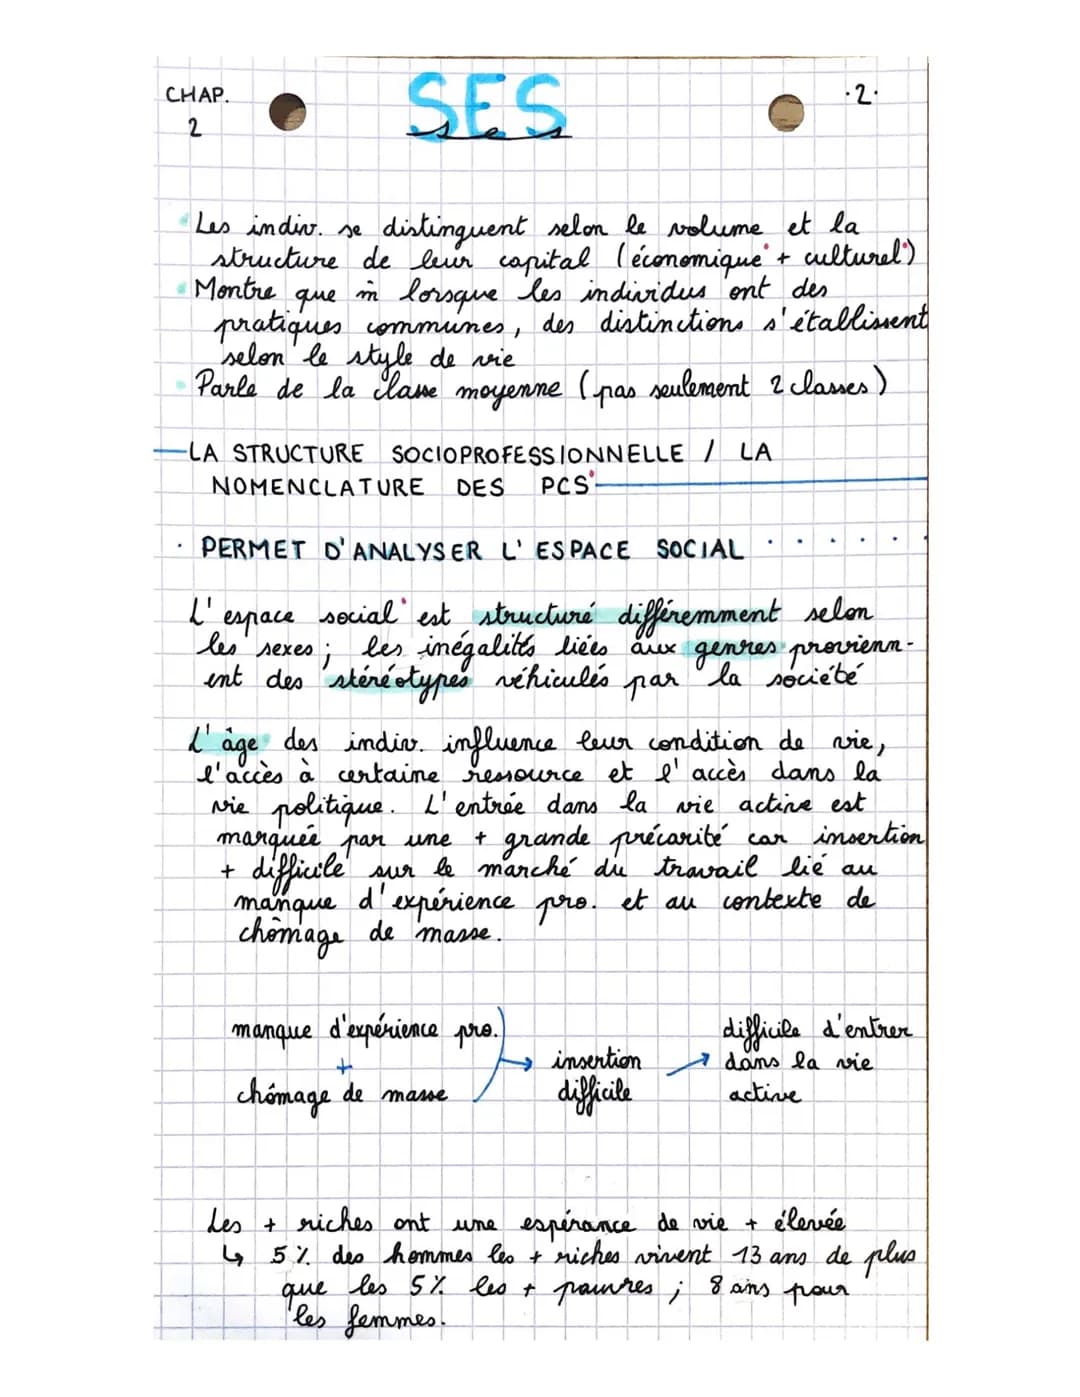 CHAP.
2
SES
ses
·2·
Les indiv. se distinguent selon le volume et la
structure de leur capital (économique + culturel)
Montre que m̂ lorsque les individus ont des
pratiques communes, des distinctions s'établissent
selon le style de vie
Parle de la classe moyenne (pas seulement 2 classes)
LA STRUCTURE SOCIOPROFESSIONNELLE / LA
NOMENCLATURE DES PCS
· PERMET D'ANALYSER L'ESPACE SOCIAL · · · · · ·
L'espace social est structuré différemment selon
les sexes ; les inégalités liées aux genres provienn-
ent des stéréotypes véhiculés par la société
L'âge des indiv. influence leur condition de vie,
l'accès à certaine ressource et l'accès dans la
vie politique. L'entrée dans la vie active est
marquée par une + grande précarité car insertion
+ difficile sur le marché du travail lié au
manque d'expérience pro. et au contexte de
chômage de masse.
manque d'expérience pro.
+
chômage de masse
→ insertion
difficile
→ difficile d'entrer
dans la vie
active
Les + riches ont une espérance de vie + élevée
↳ 5% des hommes les + riches vivent 13 ans de plus
que les 5% les + pauvres ; 8 ans pour
les femmes.